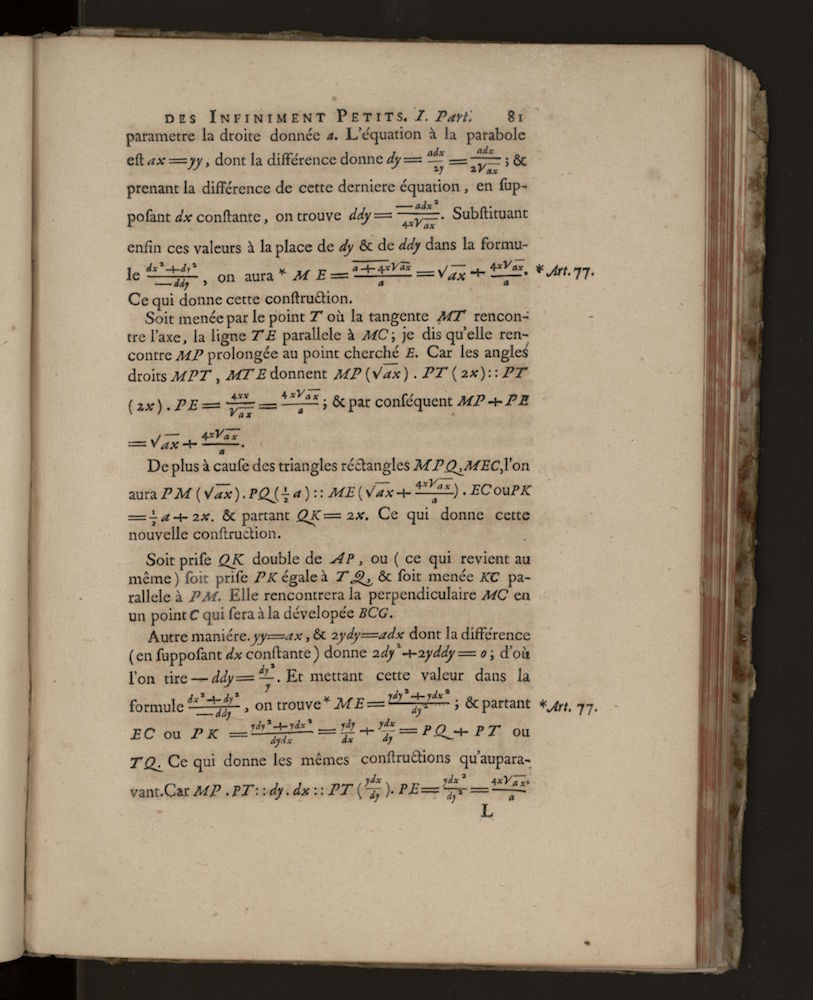 DES INFINIMENT PETITS. I. Part. 81
parametre la droite donnée a. L'équation à la parabole
eſt ax=yy, dont la différence donne dy= adx/2y = adx/2√ax ; &
prenant la différence de cette derniere équation, en ſup-
poſant dx conſtante, on trouve ddy= —adx²/4x√ax. Subſtituant
enfin ces valeurs à la place de dy & de ddy dans la formu-
le dx²+dy²/—ddy, on aura * ME= a+4x√ax/a =√ax + 4x√ax/a. * Art. 77.
Ce qui donne cette conſtruction.
Soit menée par le point T où la tangente MT rencon-
tre l'axe, la ligne TE parallele à MC; je dis qu'elle ren-
contre MP prolongée au point cherché E. Car les angles
droits MPT, MTE donnent MP (√ax) . PT (2x) :: PT
(2x) . PE= 4xx/√ax = 4x√ax/a ; & par conſéquent MP+PE
=√ax + 4x√ax/a.
De plus à cauſe des triangles réctangles MPQ, MEC, l'on
aura PM (√ax) . PQ (½a) :: ME (√ax + 4x√ax/a) . EC ou PK
=½a+2x. & partant QK=2x. Ce qui donne cette
nouvelle conſtruction.
Soit priſe QK double de AP, ou ( ce qui revient au
même) ſoit priſe PK égale à TQ, & ſoit menée KC pa-
rallele à PM. Elle rencontrera la perpendiculaire MC en
un point C qui ſera à la dévelopée BCG.
Autre maniére. yy=ax, & 2ydy=adx dont la différence
(en ſuppoſant dx conſtante) donne 2dy²+2yddy=0; d'où
l'on tire—ddy= dy²/y. Et mettant cette valeur dans la
formule dx²+dy²/—ddy, on trouve* ME= ydy²+ydx²/dy² ; & partant * Art. 77.
EC ou PK = ydy²+ydx²/dydx = ydy/dx + ydx/dy =PQ+PT ou
TQ. Ce qui donne les mêmes conſtructions qu'aupara-
vant. Car MP . PT :: dy . dx :: PT (ydx/dy). PE= ydx²/dy² = 4x√ax/a.
L